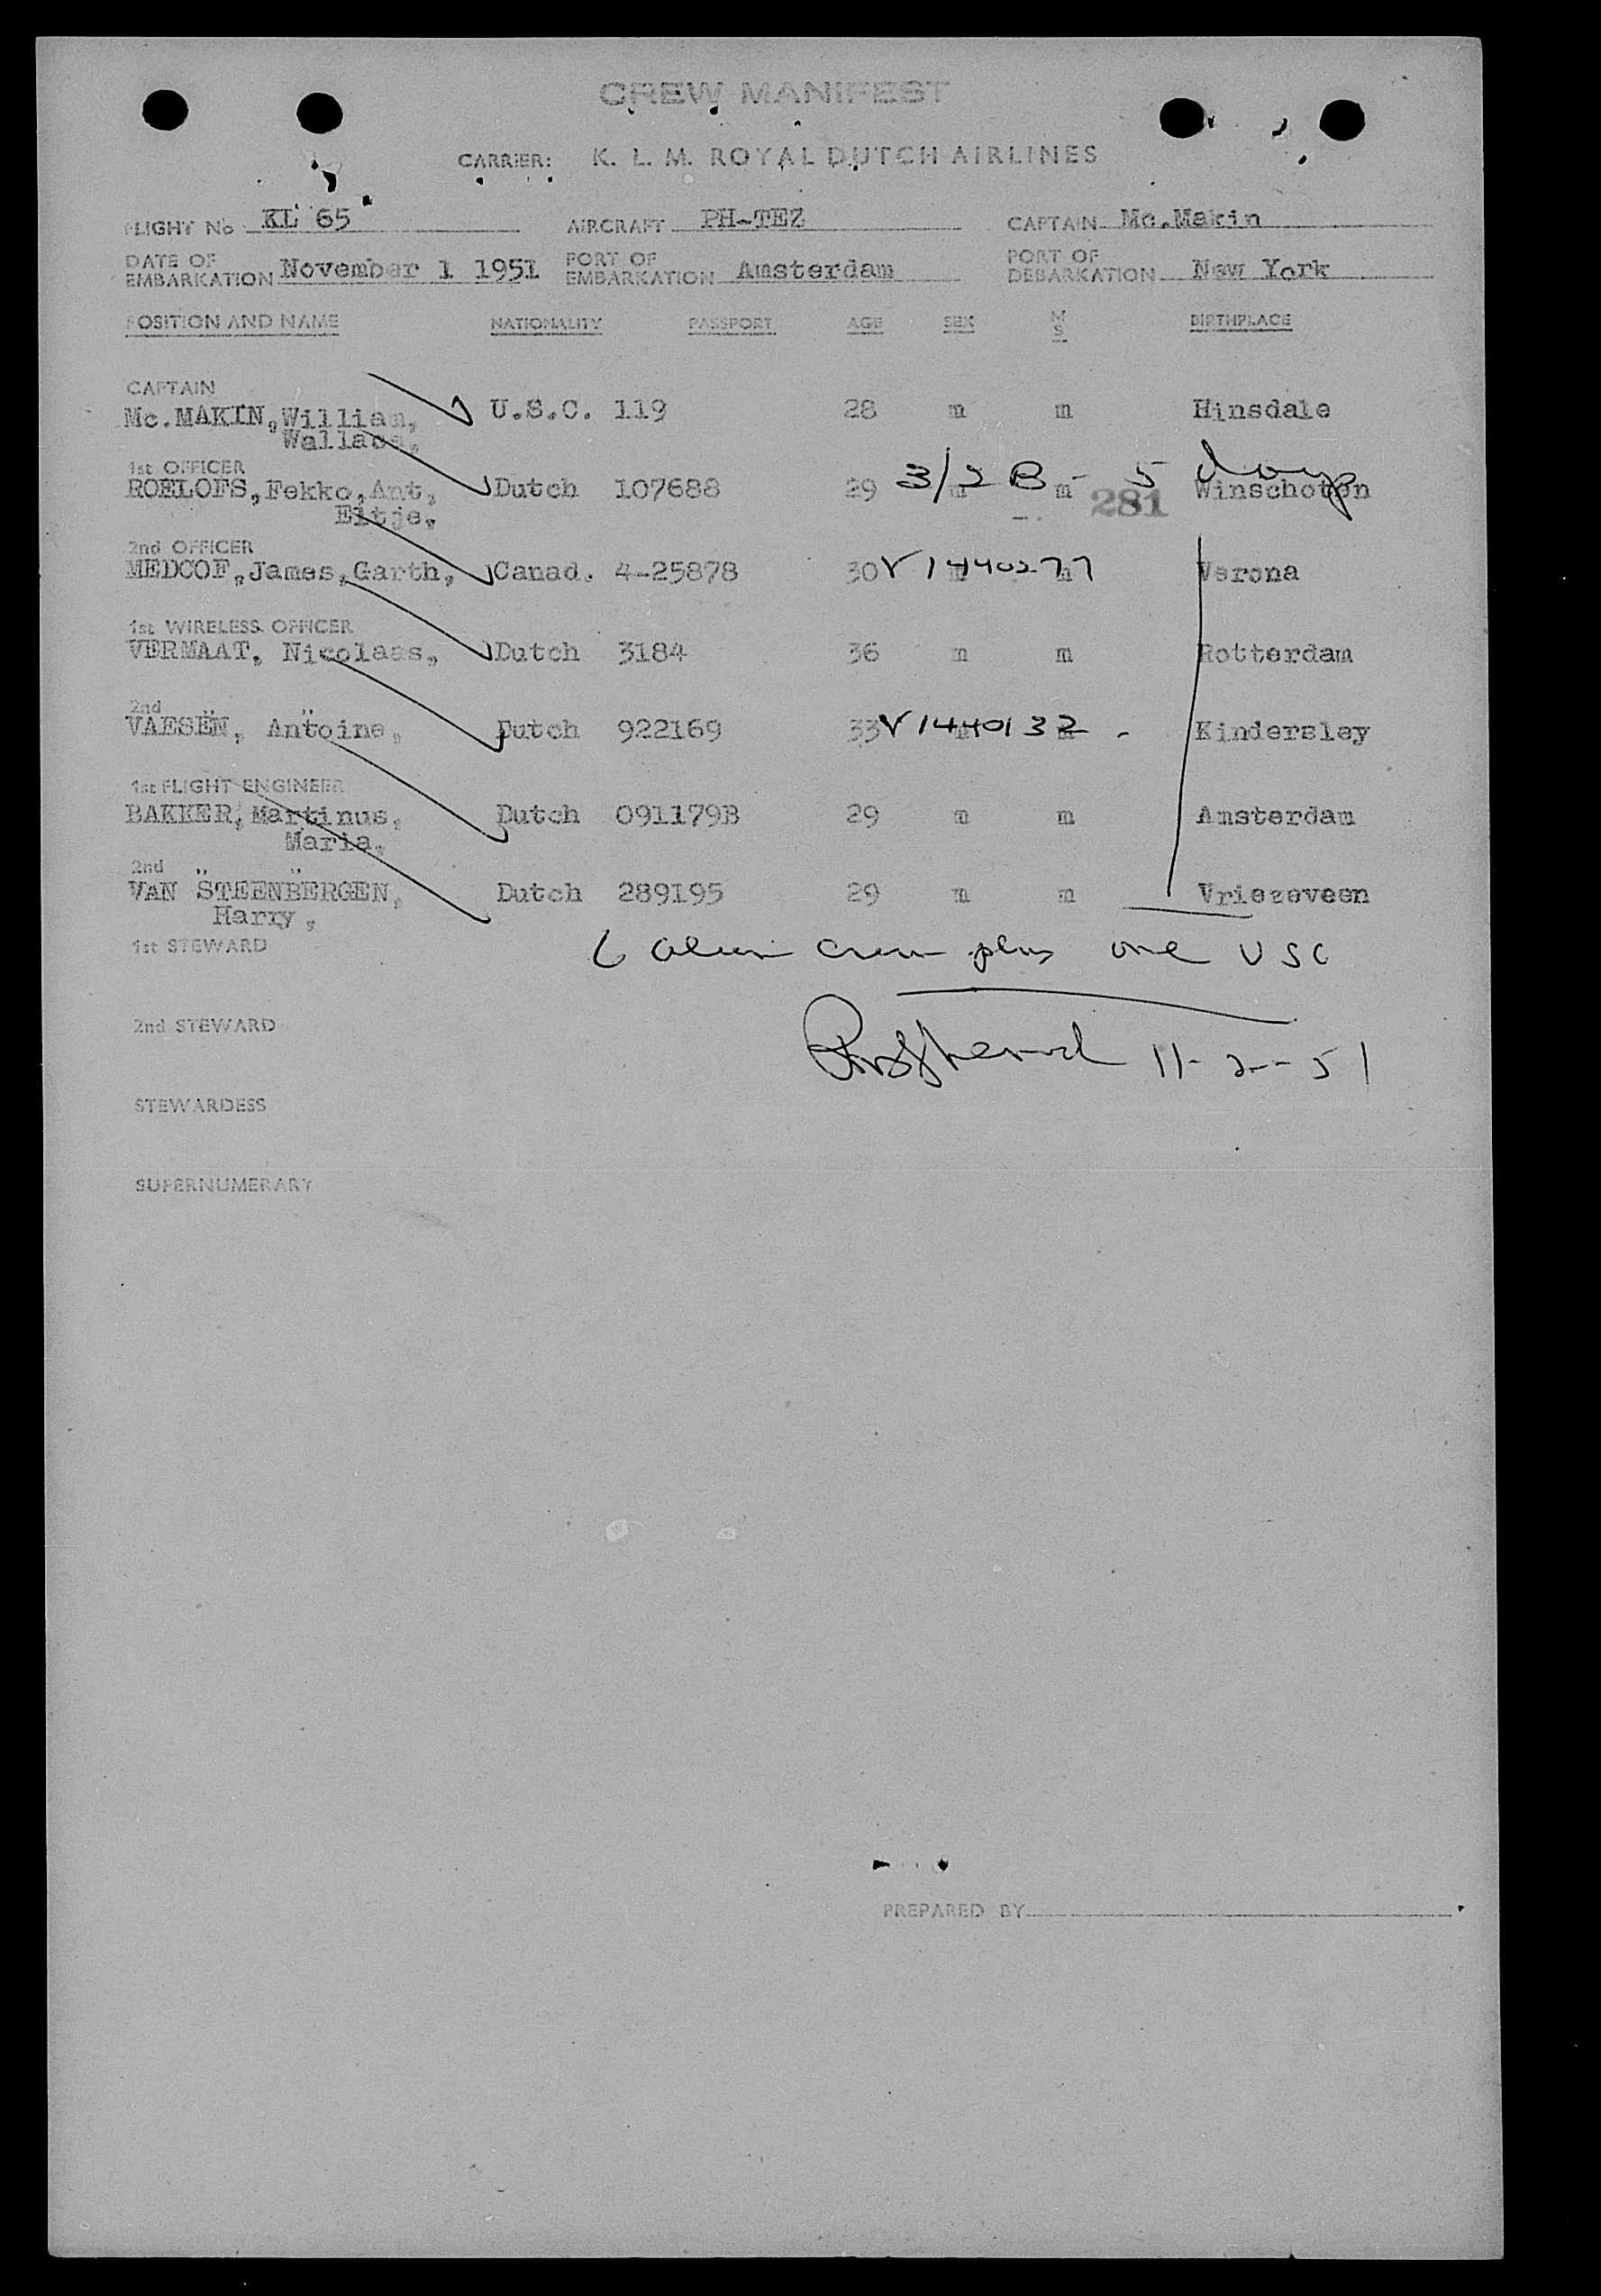 CREW MANIFEST
CARRIER: K. L. M. ROYAL DUTCH AIRLINES
FLIGHT No KL 65 AIRCRAFT PH-TEZ CAPTAIN Mc.Makin
DATE OF EMBARKATION November 1 1951 PORT OF EMBARKATION Amsterdam PORT OF DEBARKATION New York
POSITION AND NAME NATIONALITY PASSPORT AGE SEX M S BIRTHPLACE
CAPTAIN
Mc.MAKIN,William, U.S.C. 119 28 m m Hinsdale
Wallace,
1st OFFICER
3/2 B - 5 days
ROELOFS,Fekko,Ant, Dutch 107688 29 m m 281 Winschoten
Eltje,
2nd OFFICER
MEDCOF,James,Garth, Canad. 4-25878 30 V1440277 m m Verona
1st WIRELESS OFFICER
VERMAAT, Nicolaas, Dutch 3184 36 m m Rotterdam
2nd " "
VAESEN, Antoine, Dutch 922169 33 V1440132 - m m Kindersley
1st FLIGHT ENGINEER
BAKKER, Martinus, Dutch 091179B 29 m m Amsterdam
Maria,
2nd " "
VAN STEENBERGEN, Dutch 289195 29 m m Vriezeveen
Harry,
1st STEWARD
6 alien crew plus one USC
2nd STEWARD
11-2-51
STEWARDESS
SUPERNUMERARY
PREPARED BY